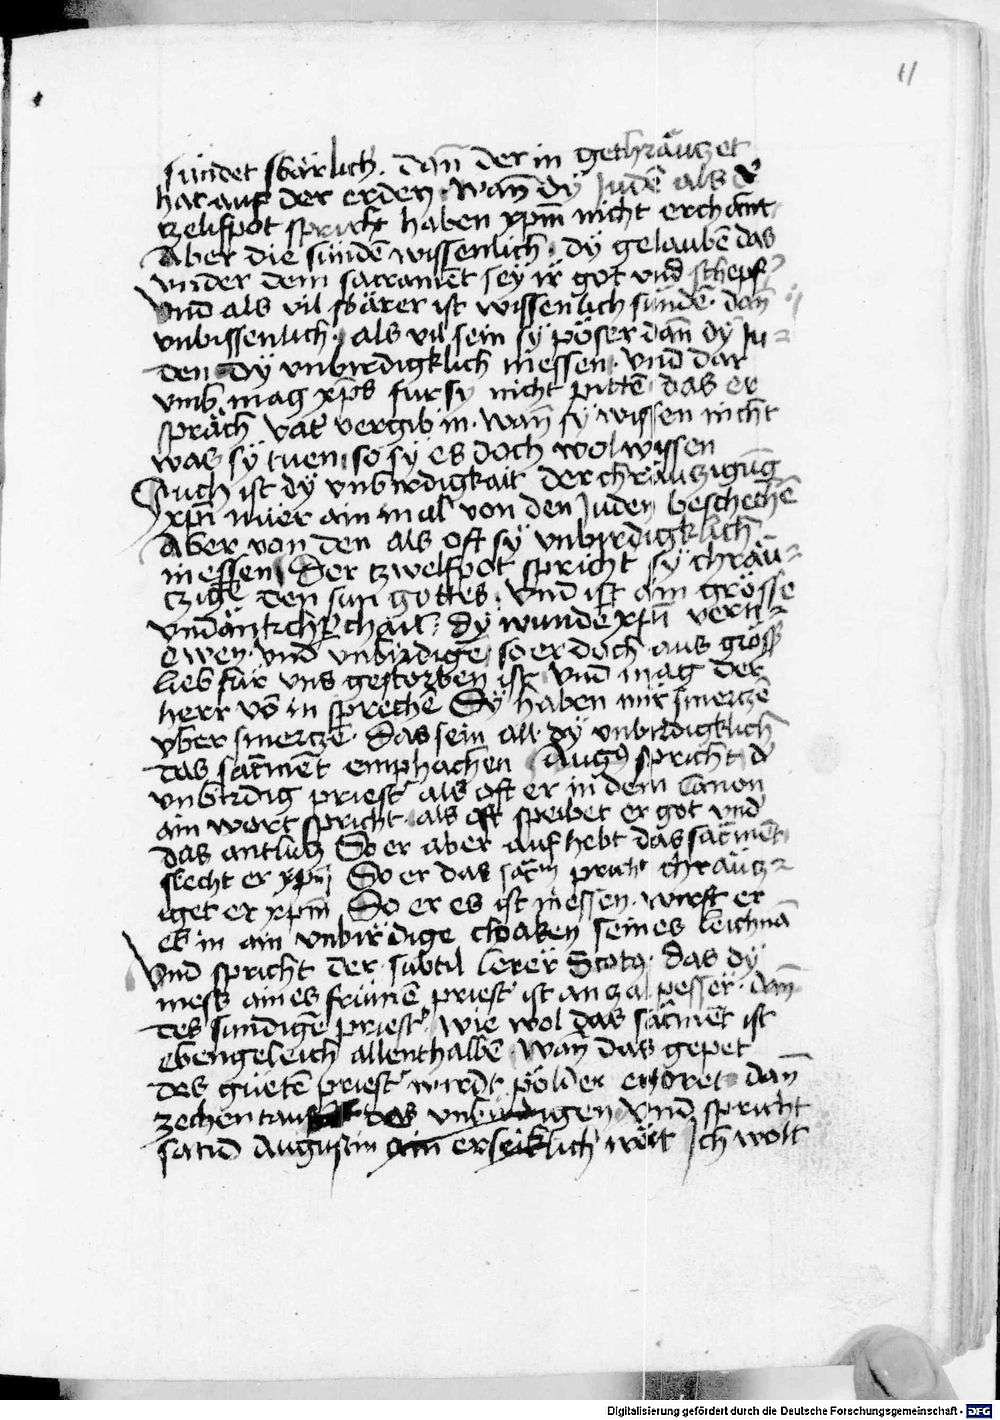 11
sündet sbärlich. dan̄ der in gechräuczet
hat auf der erden. wan̄ dÿ Judē als d͛
czelifpot spricht haben xp̄m nicht erchāt
Aber die sündē wissenlich. dÿ gelaubē das
vnder dem sacramēt seÿ ir got vnd schepf͛
Vnd als vil sbärer ist wissenlich sündē. dan̄
vnbissenlich. als vil sein sÿ pöser dan̄ dÿ Ju=
den dÿ vnbirdigklich niessen. vnd dar
vmb mag xp̄s für sy nicht pittē das er
spräch vat͛ vergib in. wan̄ sÿ wissen nicht
was sÿ tuen. so sÿ es doch wol wissen
Auch ist dÿ vnbirdigkait der chräuczigūg
xp̄ī nuer ain mal von den Juden beschechē
Aber von den als oft sÿ vnbirdigklich
niessen. Der czwelfpot spricht sÿ chräu=
czigē den sun gottes. Vnd ist ain grösse
vndänkchperchait. dÿ wundē xp̄ī verti=
ewen. vnd vnbirdigē so er doch aus gröss͛
lieb für vns gestorben ist. vnd mag der
herr vō in sprechē Sÿ haben mir smerczē
vber smerczē. Das sein all dÿ vnbirdigklich
das sacmēt emphachen Aug9 spricht d͛
vnbirdig priest͛ als oft er in dem Canon
ain wort spricht. als oft speibet er got vnd͛
das antlucz So er aber auf hebt das sacmēt
slecht er xp̄m So er das sacm̄ pricht chräucz=
iget er xp̄m So er es ist niessen. wirft er
es in ain vnbirdige chloaken seines leichnā
Vnd spricht der subtil lerer Scot9. das dÿ
mess aines frümē priest͛ ist an zal pesser. dan̄
des sundigē priest͛s wie wol das sacmēt ist
ebengeleich allenthalbē. wan̄ das gepet
des guetē priest͛ wirdt pölder erhöret dan̄
zechen taus des vnbirdigen Vnd spricht
sand Augustin ain erschriklich wört Ich wolt
Digitalisierung gefördert durch die Deutsche Forschungsgemeinschaft - DFG